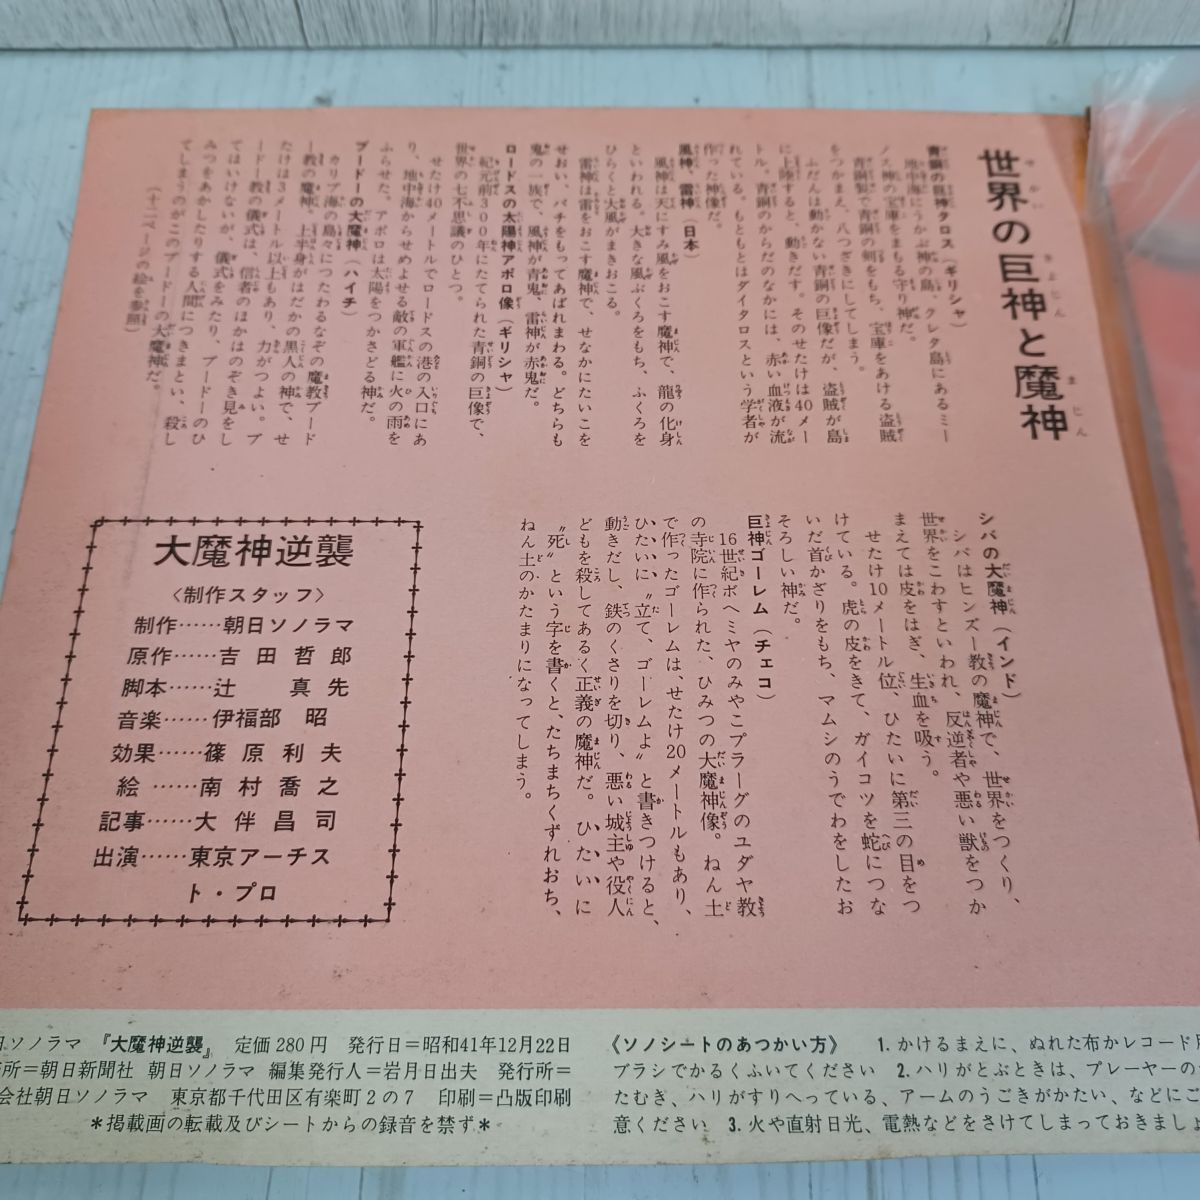 世界の巨神と魔神
青銅の巨神タロス（ギリシャ）
地中海にうかぶ神の島、クレタ島にあるミー
ノス神の宝庫をまもる守り神だ。
青銅製で青銅の剣をもち、宝庫をあける盗賊
をつかまえ、八つざきにしてしまう。
ふだんは動かない青銅の巨像だが、盗賊が島
に上陸すると、動きだす。そのせたけは40メー
トル。青銅のからだのなかには、赤い血液が流
れている。もともとはダイタロスという学者が
作った神像だ。
風神、雷神（日本）
風神は天にすみ風をおこす魔神で、龍の化身
といわれる。大きな風ぶくろをもち、ふくろを
ひらくと大風がまきおこる。
雷神は雷をおこす魔神で、せなかにたいこを
せおい、バチをもってあばれまわる。どちらも
鬼の一族で、風神が青鬼、雷神が赤鬼だ。
ロードスの太陽神アポロ像（ギリシャ）
紀元前300年にたてられた青銅の巨像で、
世界の七不思議のひとつ。
せたけ40メートルでロードスの港の入口にあ
り、地中海からせめよせる敵の軍艦に火の雨を
ふらせた。アポロは太陽をつかさどる神だ。
ブードーの大魔神（ハイチ）
カリブ海の島々につたわるなぞの魔教ブード
ー教の魔神。上半身がはだかの黒人の神で、せ
たけは3メートル以上もあり、力がつよい。ブ
ードー教の儀式は、信者のほかはのぞき見をし
てはいけないが、儀式をみたり、ブードーのひ
みつをあかしたりする人間につきまとい、殺し
てしまうのがこのブードーの大魔神だ。
（十二ページの絵を参照）
シバの大魔神（インド）
シバはヒンズー教の魔神で、世界をつくり、
世界をこわすといわれ、反逆者や悪い獣をつか
まえては皮をはぎ、生血を吸う。
せたけ10メートル位、ひたいに第三の目をつ
けている。虎の皮をきて、ガイコツを蛇につな
いだ首かざりをもち、マムシのうでわをしたお
そろしい神だ。
巨神ゴーレム（チェコ）
16世紀ボヘミヤのみやこプラーグのユダヤ教
の寺院に作られた、ひみつの大魔神像。ねん土
で作ったゴーレムは、せたけ20メートルもあり、
ひたいに〝立て、ゴーレムよ〟と書きつけると、
動きだし、鉄のくさりを切り、悪い城主や役人
どもを殺してあるく正義の魔神だ。ひたいに
〝死〟という字を書くと、たちまちくずれおち、
ねん土のかたまりになってしまう。
大魔神逆襲
〈制作スタッフ〉
制作……朝日ソノラマ
原作……吉田哲郎
脚本……辻 真先
音楽……伊福部 昭
効果……篠原利夫
絵……南村喬之
記事……大伴昌司
出演……東京アーチス
ト・プロ
日ソノラマ 『大魔神逆襲』 定価280円 発行日＝昭和41年12月22日
所＝朝日新聞社 朝日ソノラマ 編集発行人＝岩月日出夫 発行所＝
会社朝日ソノラマ 東京都千代田区有楽町2の7 印刷＝凸版印刷
＊掲載画の転載及びシートからの録音を禁ず＊
《ソノシートのあつかい方》 1. かけるまえに、ぬれた布かレコード用
ブラシでかるくふいてください 2. ハリがとぶときは、プレーヤーの
たむき、ハリがすりへっている、アームのうごきがかたい、などにご
意ください 3. 火や直射日光、電熱などをさけてしまっておきましょ